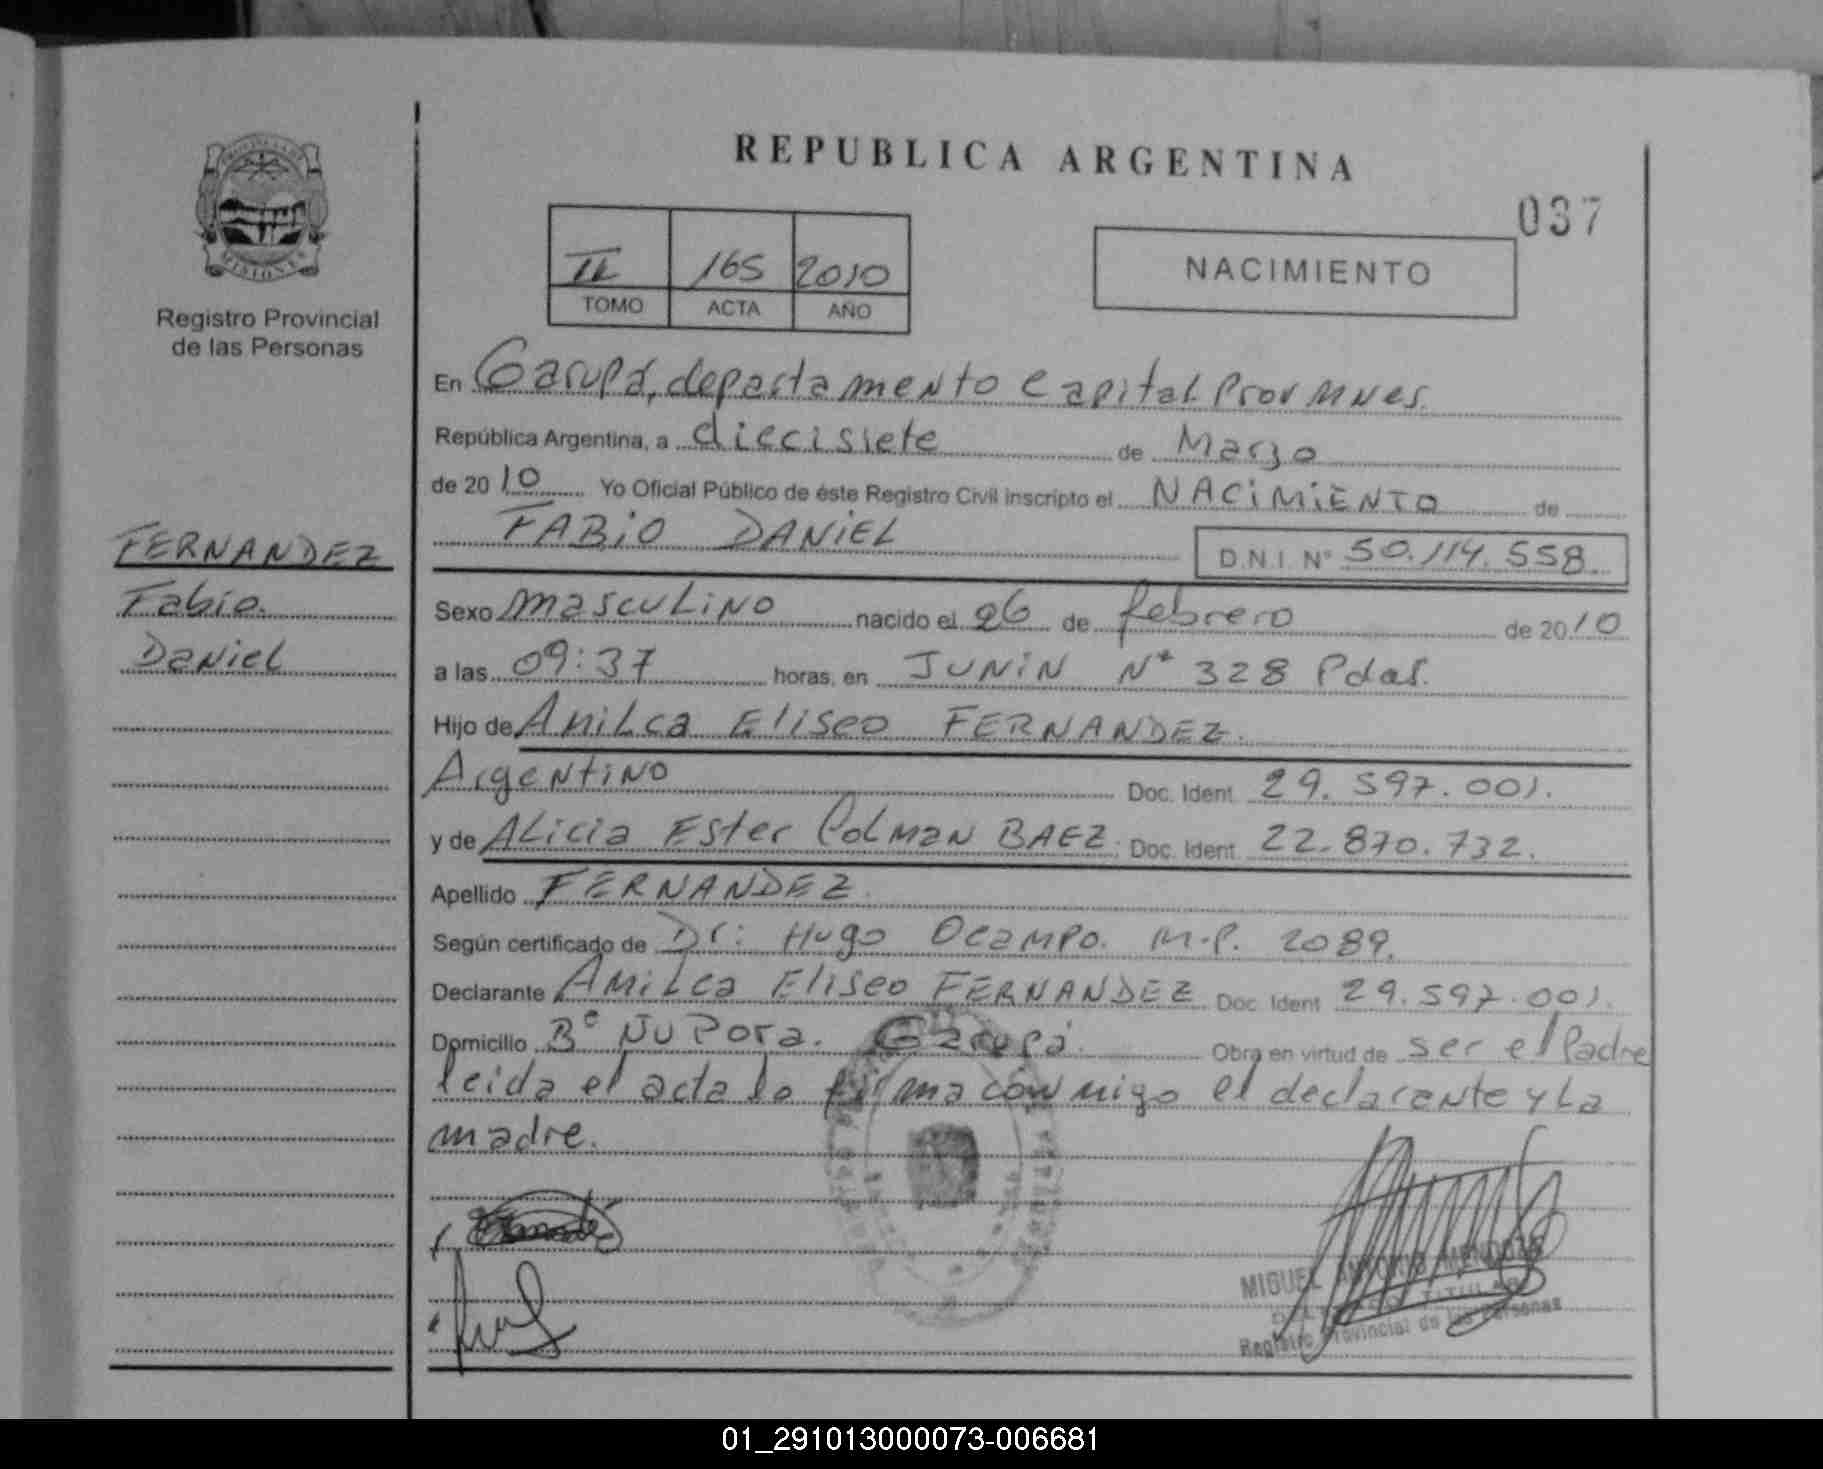 REPUBLICA ARGENTINA
037
PROVINCIA DE
MISIONES
Registro Provincial
de las Personas
II 165 2010
TOMO ACTA AÑO
NACIMIENTO
En Garupá, departamento Capital Prov Mnes.
República Argentina, a diecisiete de Marzo
de 20 10 Yo Oficial Público de éste Registro Civil inscripto el NACIMIENTO de
FABIO DANIEL D.N.I. N° 50.114.558
FERNANDEZ
Fabio
Daniel
Sexo masculino nacido el 26 de febrero de 20 10
a las 09:37 horas, en JUNIN N° 328 Pdas.
Hijo de Amilca Eliseo FERNANDEZ.
Argentino Doc. Ident. 29.597.001.
y de Alicia Ester Colman BAEZ. Doc. Ident. 22.870.732.
Apellido FERNANDEZ.
Según certificado de Dr: Hugo Ocampo. M.P. 2089.
Declarante Amilca Eliseo FERNANDEZ Doc. Ident. 29.597.001.
Domicilio B° Ñu Pora. Garupá. Obra en virtud de ser el Padre
leida el acta lo firma conmigo el declarante y la
madre.
MIGUEL ANTONIO MENDOZA
TITULAR
Registro Provincial de las Personas
01_291013000073-006681